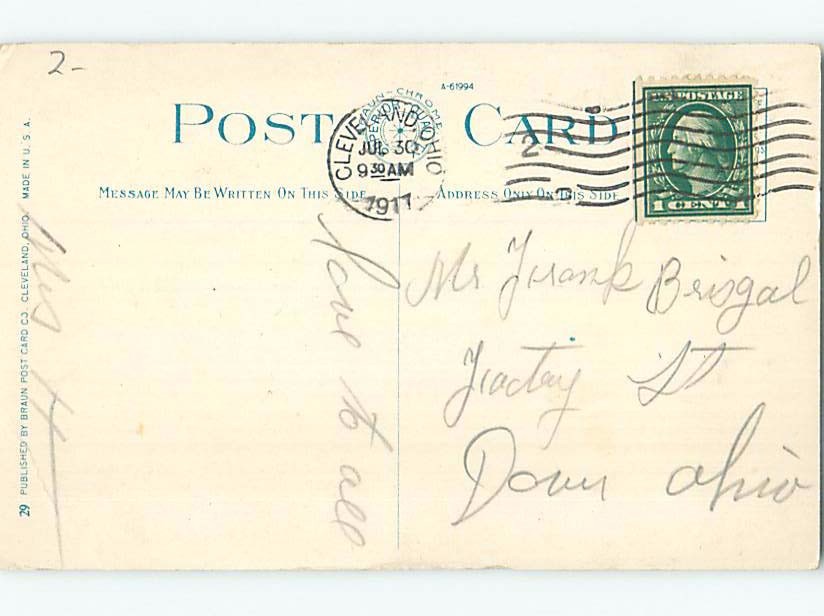 2-
A-61994
POST CARD
BRAUN-CHROME
SUPERIOR QUALITY
CLEVELAND, OHIO
JUL 30
9 30 AM
1917
U.S. POSTAGE
1 CENT 1
MESSAGE MAY BE WRITTEN ON THIS SIDE
ADDRESS ONLY ON THIS SIDE
29 PUBLISHED BY BRAUN POST CARD CO. CLEVELAND, OHIO. MADE IN U. S. A.
Mrs H
love to all
Mr Frank Brisgal
Factory St
Dover Ohio